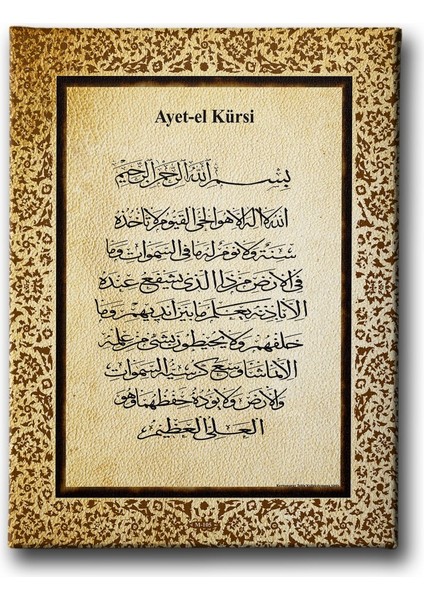 Ayet-el Kürsi
بسم الله الرحمن الرحيم
الله لا اله الا هو الحي القيوم لا تاخذه
سنة ولا نوم له ما في السموات وما
في الارض من ذا الذي يشفع عنده
الا باذنه يعلم ما بين ايديهم وما
خلفهم ولا يحيطون بشئ من علمه
الا بما شاء وسع كرسيه السموات
والارض ولا يؤده حفظهما وهو
العلي العظيم
M-105